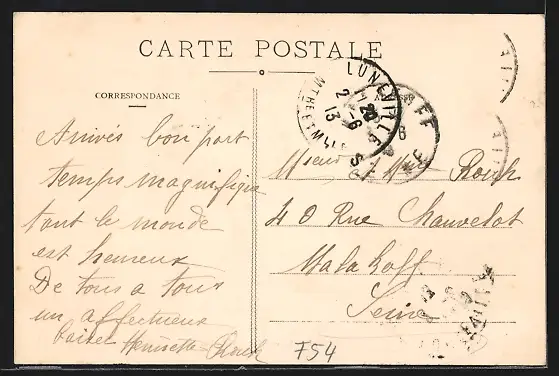 CARTE POSTALE
CORRESPONDANCE
Arrivés bon port
temps magnifique
tout le monde
est heureux
De tous a tous
un affectueux
baiser Henriette
LUNEVILLE
2-6
13
Msieur Mme Rouch
40 Rue Chauvelot
Malakoff
Seine
F54